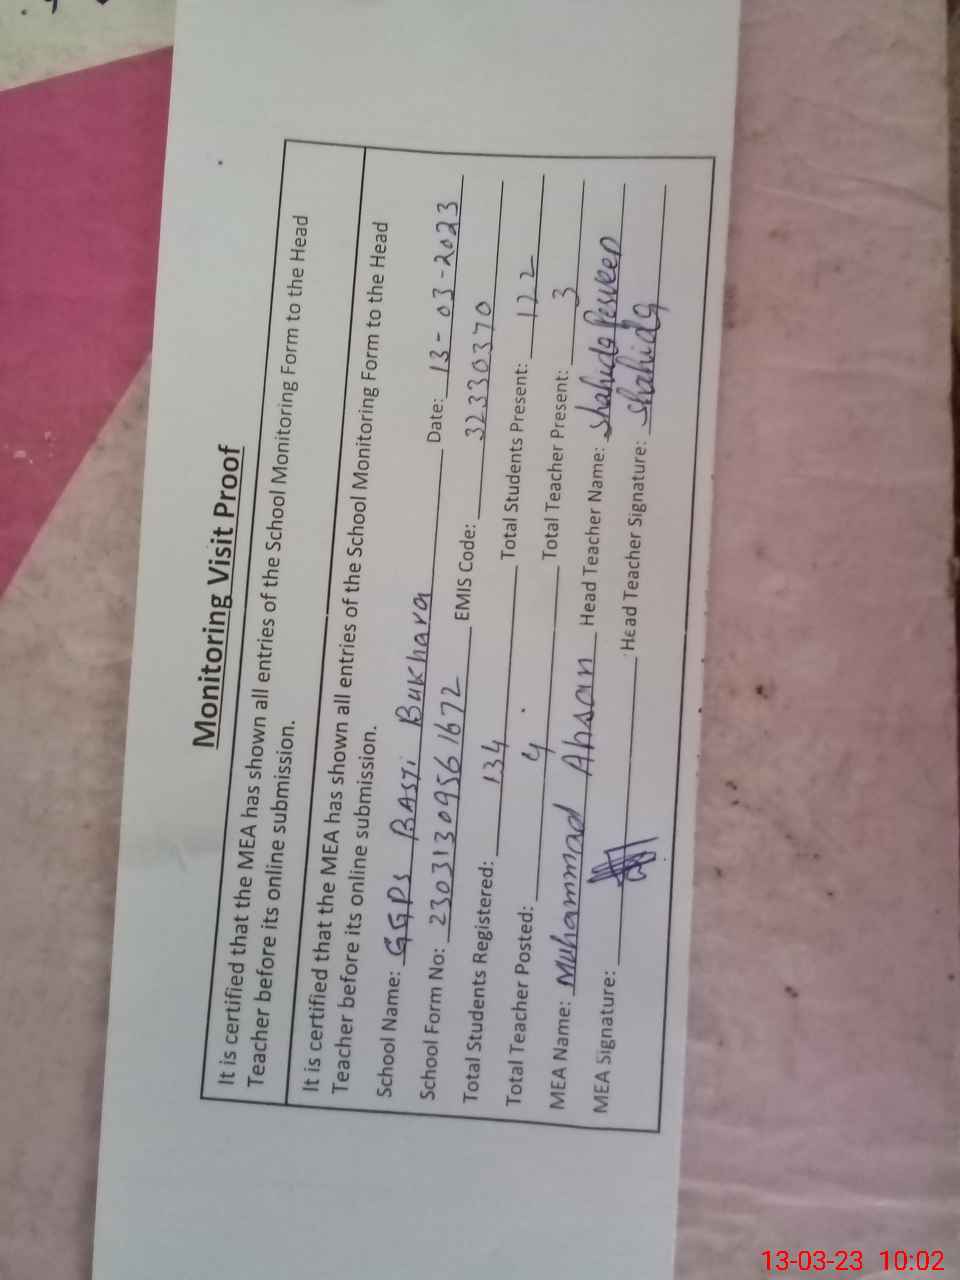 Monitoring Visit Proof
It is certified that the MEA has shown all entries of the School Monitoring Form to the Head
Teacher before its online submission.
It is certified that the MEA has shown all entries of the School Monitoring Form to the Head
Teacher before its online submission.
School Name: GGPS BASTi Bukhara Date: 13-03-2023
School Form No: 23031309561672 EMIS Code: 32330370
Total Students Registered: 134 Total Students Present: 122
Total Teacher Posted: 4 Total Teacher Present: 3
MEA Name: Muhammad Ahsan Head Teacher Name: Shahida Perveen
MEA Signature: Head Teacher Signature: Shahida
13-03-23 10:02